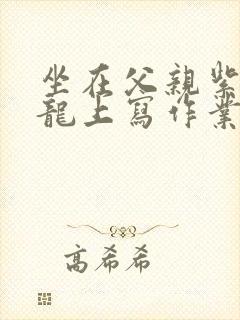 坐在父親紫
龍上寫作業
高希希